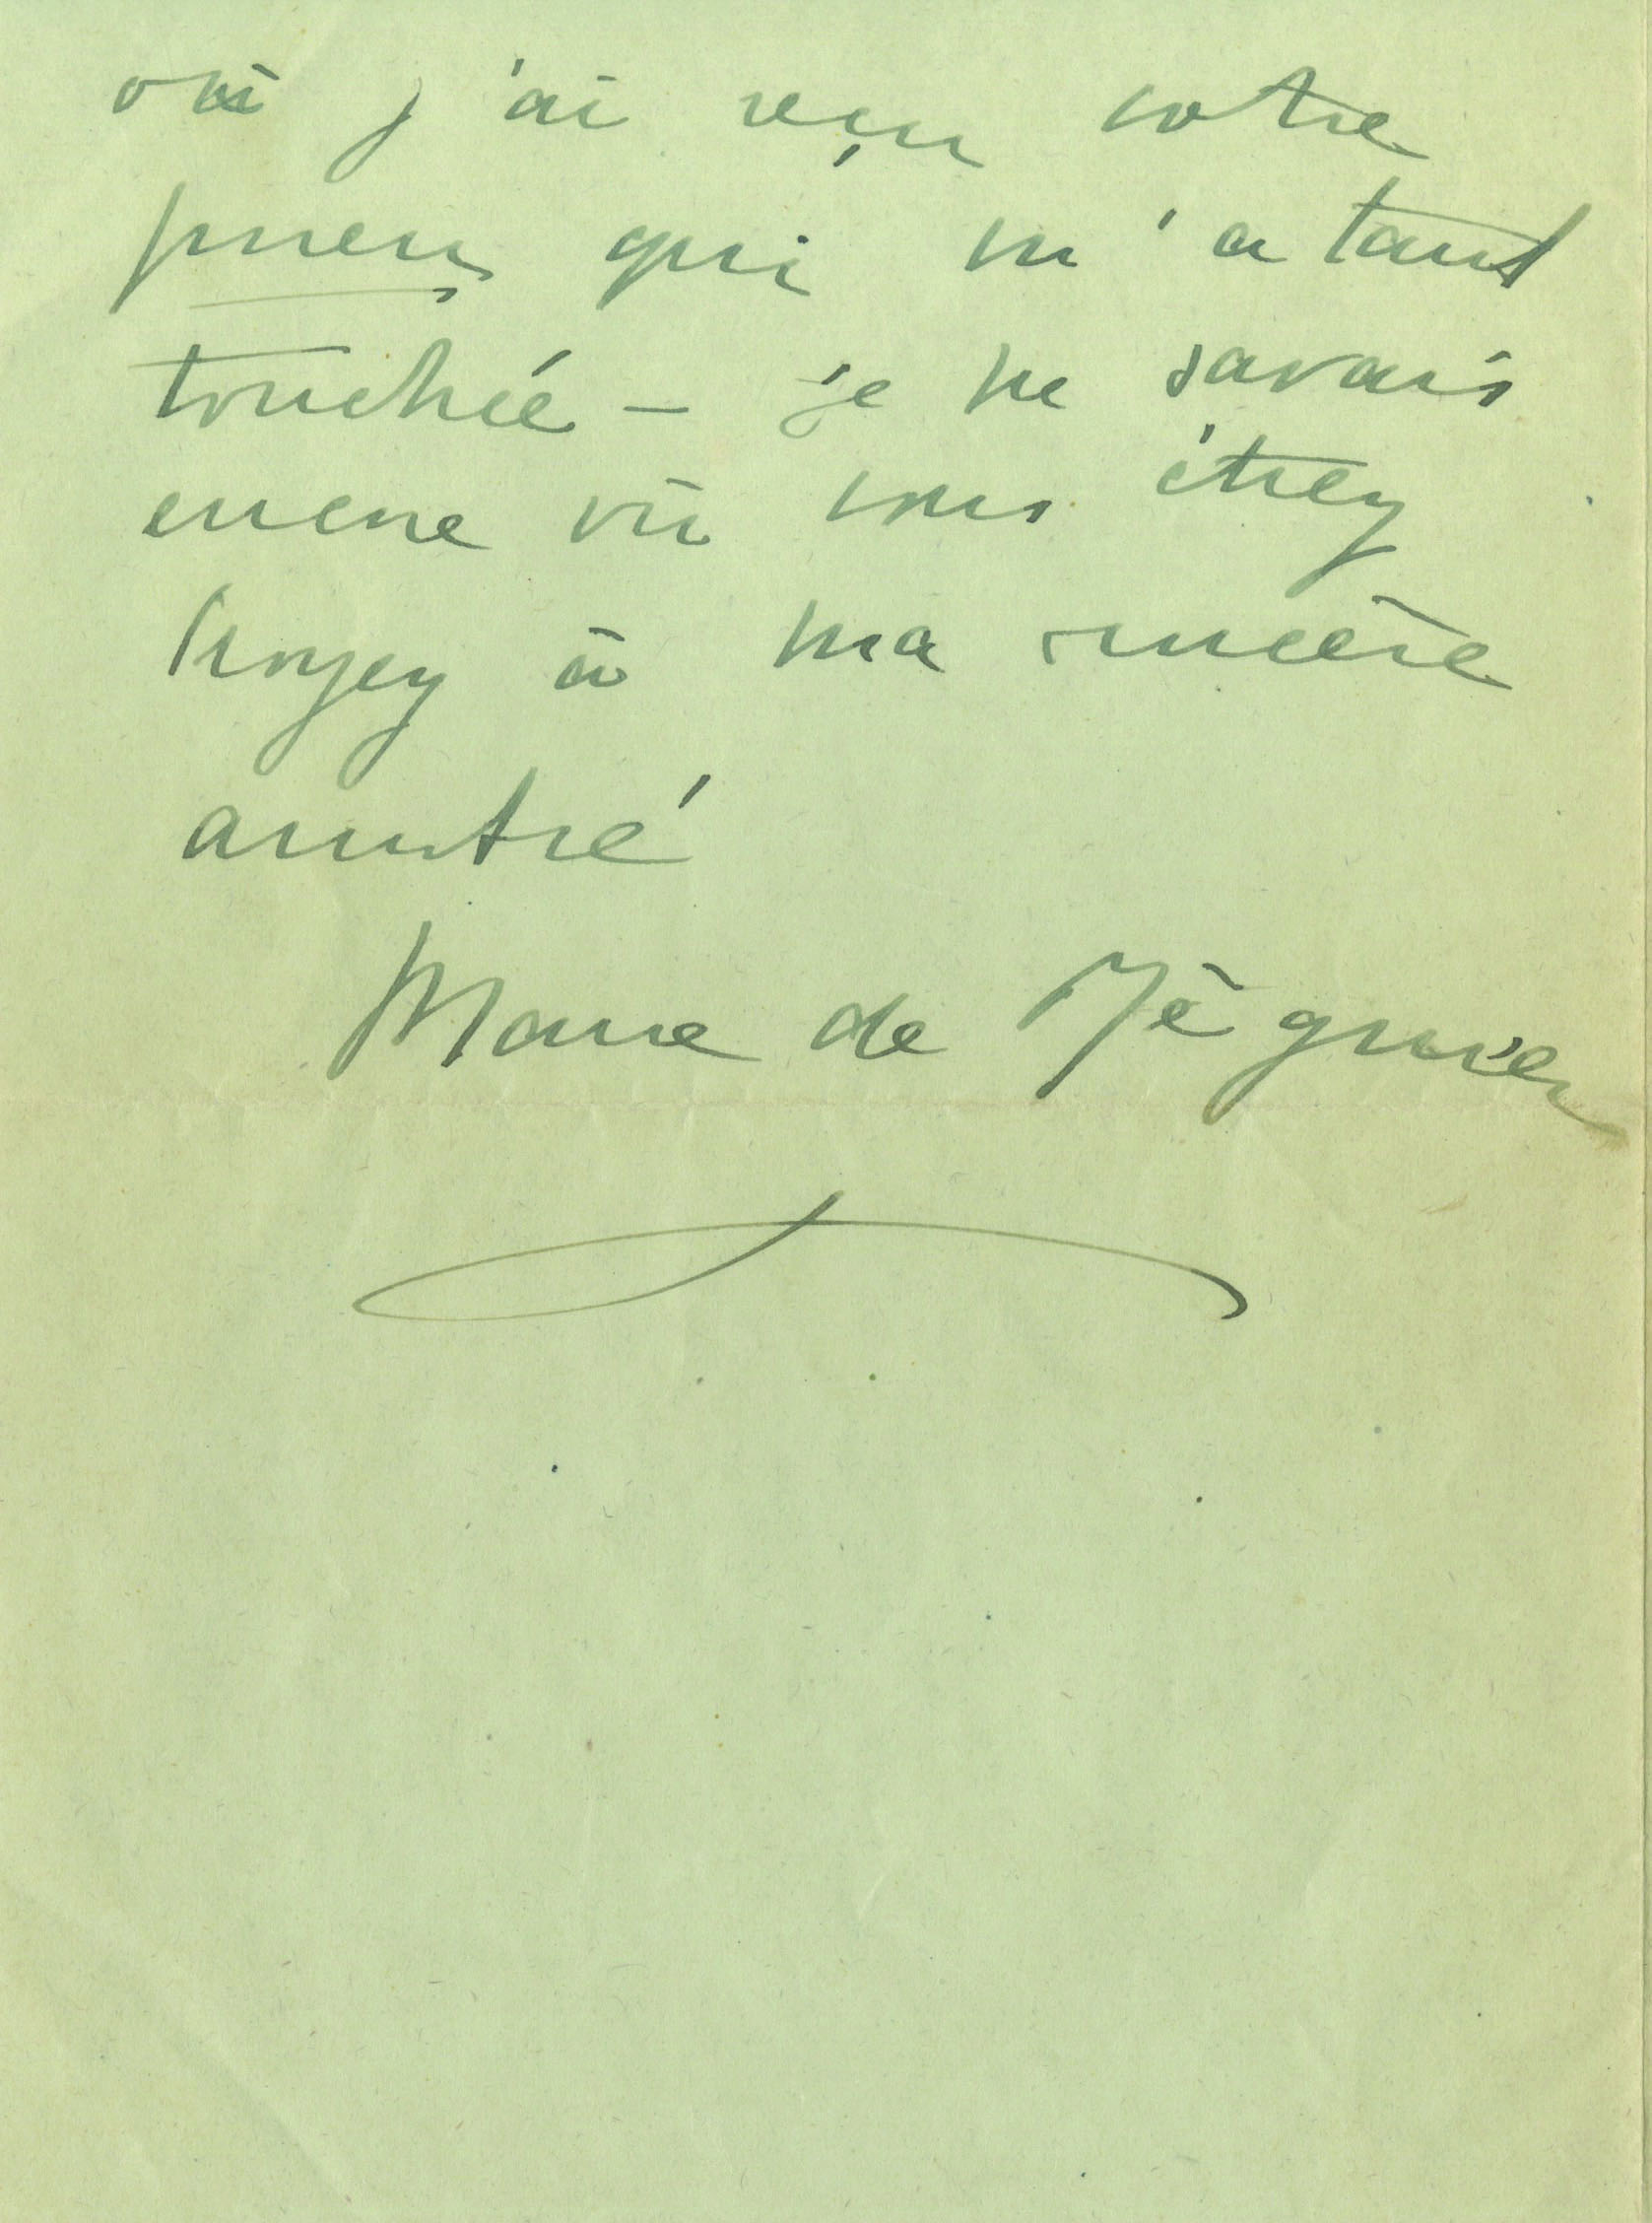 où j'ai reçu votre
pneu qui m'a tant
touchée – je ne savais
encore où vous étiez
Croyez à ma sincère
amitié
Marie de Régnier